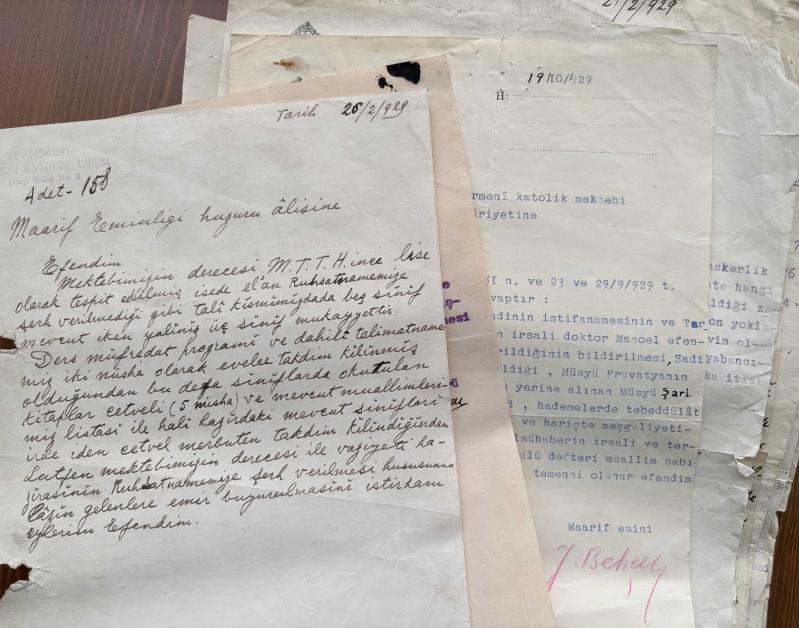 21/2/929
Tarih 26/2/929
PANGALTI
ENİ KATOLİK LİSESİ
Sokak No. 2
Adet - 158
Maarif Eminligi huzuru âlisine
Efendim
Mektebimizin derecesi M. T. T. H. ince lise
olarak tespit edilmiş isede el'an Ruhsatnamemize
şerh verilmediği gibi talî kismimizdada beş sinif
mevcut iken yaliniz üç sinif mukayyettir.
Ders müfredat programi ve dahilî talimatname
miz iki nüsha olarak evelce takdim kilinmiş
olduğundan bu defa siniflarda okutulan
kitaplar cetveli (5 nüsha) ve mevcut muallimleri-
miz listasi ile hali hazirdaki mevcut siniflari
irae iden cetvel merbuten takdim kilindiğindan
Lutfen mektebimizin derecesi ile vaziyeti ha-
zirasinin Ruhsatnamemize şerh verilmesi hususunun
lâzin gelenlere emir buyurulmasini istirham
eylerim Efendim.
19/10/929
H:
rmenî katolik mektebi
riyetine
I n. ve 23 ve 29/9/929 t.
vaptır :
ndinin istifanamesinin ve Tar
n irsali doktor Manoel efen
rildiğinin bildirilmesi, Sadi
ldiği , Müsyü Fruvatyanın
yerine alınan Müsyü Şarl
i , hademelerde tebeddülât
ve hariçte meşguliyeti-
lmühaberin irsali ve ter-
ülü defteri muallim sabı-
temenni olunur efendim
Maarif emini
Behçet
skerlik
te hangi
ldiği za
on yokl-
vim ol-
yabancı-
ka itası